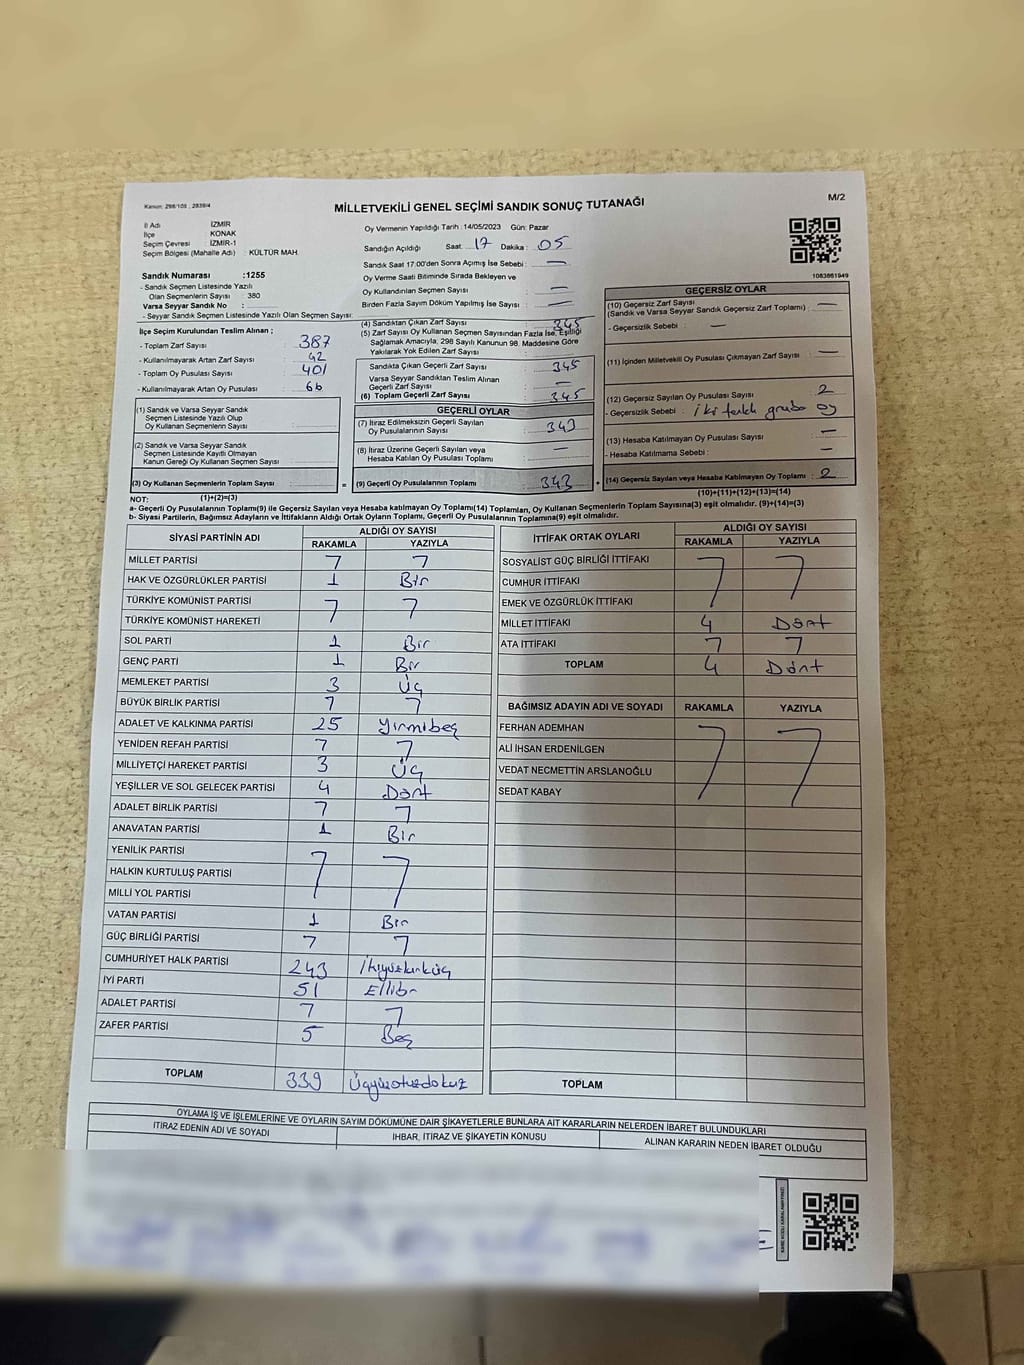 Kanun: 298/105 , 2839/4
MİLLETVEKİLİ GENEL SEÇİMİ SANDIK SONUÇ TUTANAĞI
M/2
İl Adı : İZMİR
İlçe : KONAK
Seçim Çevresi : İZMİR-1
Seçim Bölgesi (Mahalle Adı) : KÜLTÜR MAH.
Sandık Numarası :1255
- Sandık Seçmen Listesinde Yazılı
Olan Seçmenlerin Sayısı : 380
Varsa Seyyar Sandık No :
- Seyyar Sandık Seçmen Listesinde Yazılı Olan Seçmen Sayısı:
İlçe Seçim Kurulundan Teslim Alınan ;
- Toplam Zarf Sayısı : 387
- Kullanılmayarak Artan Zarf Sayısı : 42
- Toplam Oy Pusulası Sayısı : 401
- Kullanılmayarak Artan Oy Pusulası : 66
(1) Sandık ve Varsa Seyyar Sandık
Seçmen Listesinde Yazılı Olup
Oy Kullanan Seçmenlerin Sayısı :
(2) Sandık ve Varsa Seyyar Sandık
Seçmen Listesinde Kayıtlı Olmayan
Kanun Gereği Oy Kullanan Seçmen Sayısı :
(3) Oy Kullanan Seçmenlerin Toplam Sayısı :
Oy Vermenin Yapıldığı Tarih :14/05/2023 Gün: Pazar
Sandığın Açıldığı Saat: 17 Dakika : 05
Sandık Saat 17:00'den Sonra Açımış İse Sebebi : —
Oy Verme Saati Bitiminde Sırada Bekleyen ve
Oy Kullandırılan Seçmen Sayısı : —
Birden Fazla Sayım Döküm Yapılmış İse Sayısı : —
(4) Sandıktan Çıkan Zarf Sayısı : 345
(5) Zarf Sayısı Oy Kullanan Seçmen Sayısından Fazla İse, Eşitliği
Sağlamak Amacıyla, 298 Sayılı Kanunun 98. Maddesine Göre
Yakılarak Yok Edilen Zarf Sayısı :
Sandıkta Çıkan Geçerli Zarf Sayısı : 345
Varsa Seyyar Sandıktan Teslim Alınan
Geçerli Zarf Sayısı : —
(6) Toplam Geçerli Zarf Sayısı : 345
GEÇERLİ OYLAR
(7) İtiraz Edilmeksizin Geçerli Sayılan
Oy Pusulalarının Sayısı : 343
(8) İtiraz Üzerine Geçerli Sayılan veya
Hesaba Katılan Oy Pusulası Toplamı : —
= (9) Geçerli Oy Pusulalarının Toplamı : 343 +
1083861949
GEÇERSİZ OYLAR
(10) Geçersiz Zarf Sayısı : —
(Sandık ve Varsa Seyyar Sandık Geçersiz Zarf Toplamı)
- Geçersizlik Sebebi : —
(11) İçinden Milletvekili Oy Pusulası Çıkmayan Zarf Sayısı : —
(12) Geçersiz Sayılan Oy Pusulası Sayısı : 2
- Geçersizlik Sebebi : iki farklı gruba oy
(13) Hesaba Katılmayan Oy Pusulası Sayısı : —
- Hesaba Katılmama Sebebi : —
(14) Geçersiz Sayılan veya Hesaba Katılmayan Oy Toplamı : 2
NOT: (1)+(2)=(3)
(10)+(11)+(12)+(13)=(14)
a- Geçerli Oy Pusulalarının Toplamı(9) ile Geçersiz Sayılan veya Hesaba katılmayan Oy Toplamı(14) Toplamları, Oy Kullanan Seçmenlerin Toplam Sayısına(3) eşit olmalıdır. (9)+(14)=(3)
b- Siyasi Partilerin, Bağımsız Adayların ve İttifakların Aldığı Ortak Oyların Toplamı, Geçerli Oy Pusulalarının Toplamına(9) eşit olmalıdır.
SİYASİ PARTİNİN ADI ALDIĞI OY SAYISI
RAKAMLA YAZIYLA
MİLLET PARTİSİ 7 7
HAK VE ÖZGÜRLÜKLER PARTİSİ 1 Bir
TÜRKİYE KOMÜNİST PARTİSİ 7 7
TÜRKİYE KOMÜNİST HAREKETİ
SOL PARTİ 1 Bir
GENÇ PARTİ 1 Bir
MEMLEKET PARTİSİ 3 Üç
BÜYÜK BİRLİK PARTİSİ 7 7
ADALET VE KALKINMA PARTİSİ 25 Yirmibeş
YENİDEN REFAH PARTİSİ 7 7
MİLLİYETÇİ HAREKET PARTİSİ 3 Üç
YEŞİLLER VE SOL GELECEK PARTİSİ 4 Dört
ADALET BİRLİK PARTİSİ 7 7
ANAVATAN PARTİSİ 1 Bir
YENİLİK PARTİSİ 7 7
HALKIN KURTULUŞ PARTİSİ
MİLLİ YOL PARTİSİ
VATAN PARTİSİ 1 Bir
GÜÇ BİRLİĞİ PARTİSİ 7 7
CUMHURİYET HALK PARTİSİ 243 İkiyüzkırküç
İYİ PARTİ 51 Ellibir
ADALET PARTİSİ 7 7
ZAFER PARTİSİ 5 Beş
TOPLAM 339 Üçyüzotuzdokuz
İTTİFAK ORTAK OYLARI ALDIĞI OY SAYISI
RAKAMLA YAZIYLA
SOSYALİST GÜÇ BİRLİĞİ İTTİFAKI 7 7
CUMHUR İTTİFAKI
EMEK VE ÖZGÜRLÜK İTTİFAKI
MİLLET İTTİFAKI 4 Dört
ATA İTTİFAKI 7 7
TOPLAM 4 Dört
BAĞIMSIZ ADAYIN ADI VE SOYADI RAKAMLA YAZIYLA
FERHAN ADEMHAN 7 7
ALİ İHSAN ERDENİLGEN
VEDAT NECMETTİN ARSLANOĞLU
SEDAT KABAY
TOPLAM
OYLAMA İŞ VE İŞLEMLERİNE VE OYLARIN SAYIM DÖKÜMÜNE DAİR ŞİKAYETLERLE BUNLARA AİT KARARLARIN NELERDEN İBARET BULUNDUKLARI
İTİRAZ EDENİN ADI VE SOYADI İHBAR, İTİRAZ VE ŞİKAYETİN KONUSU ALINAN KARARIN NEDEN İBARET OLDUĞU